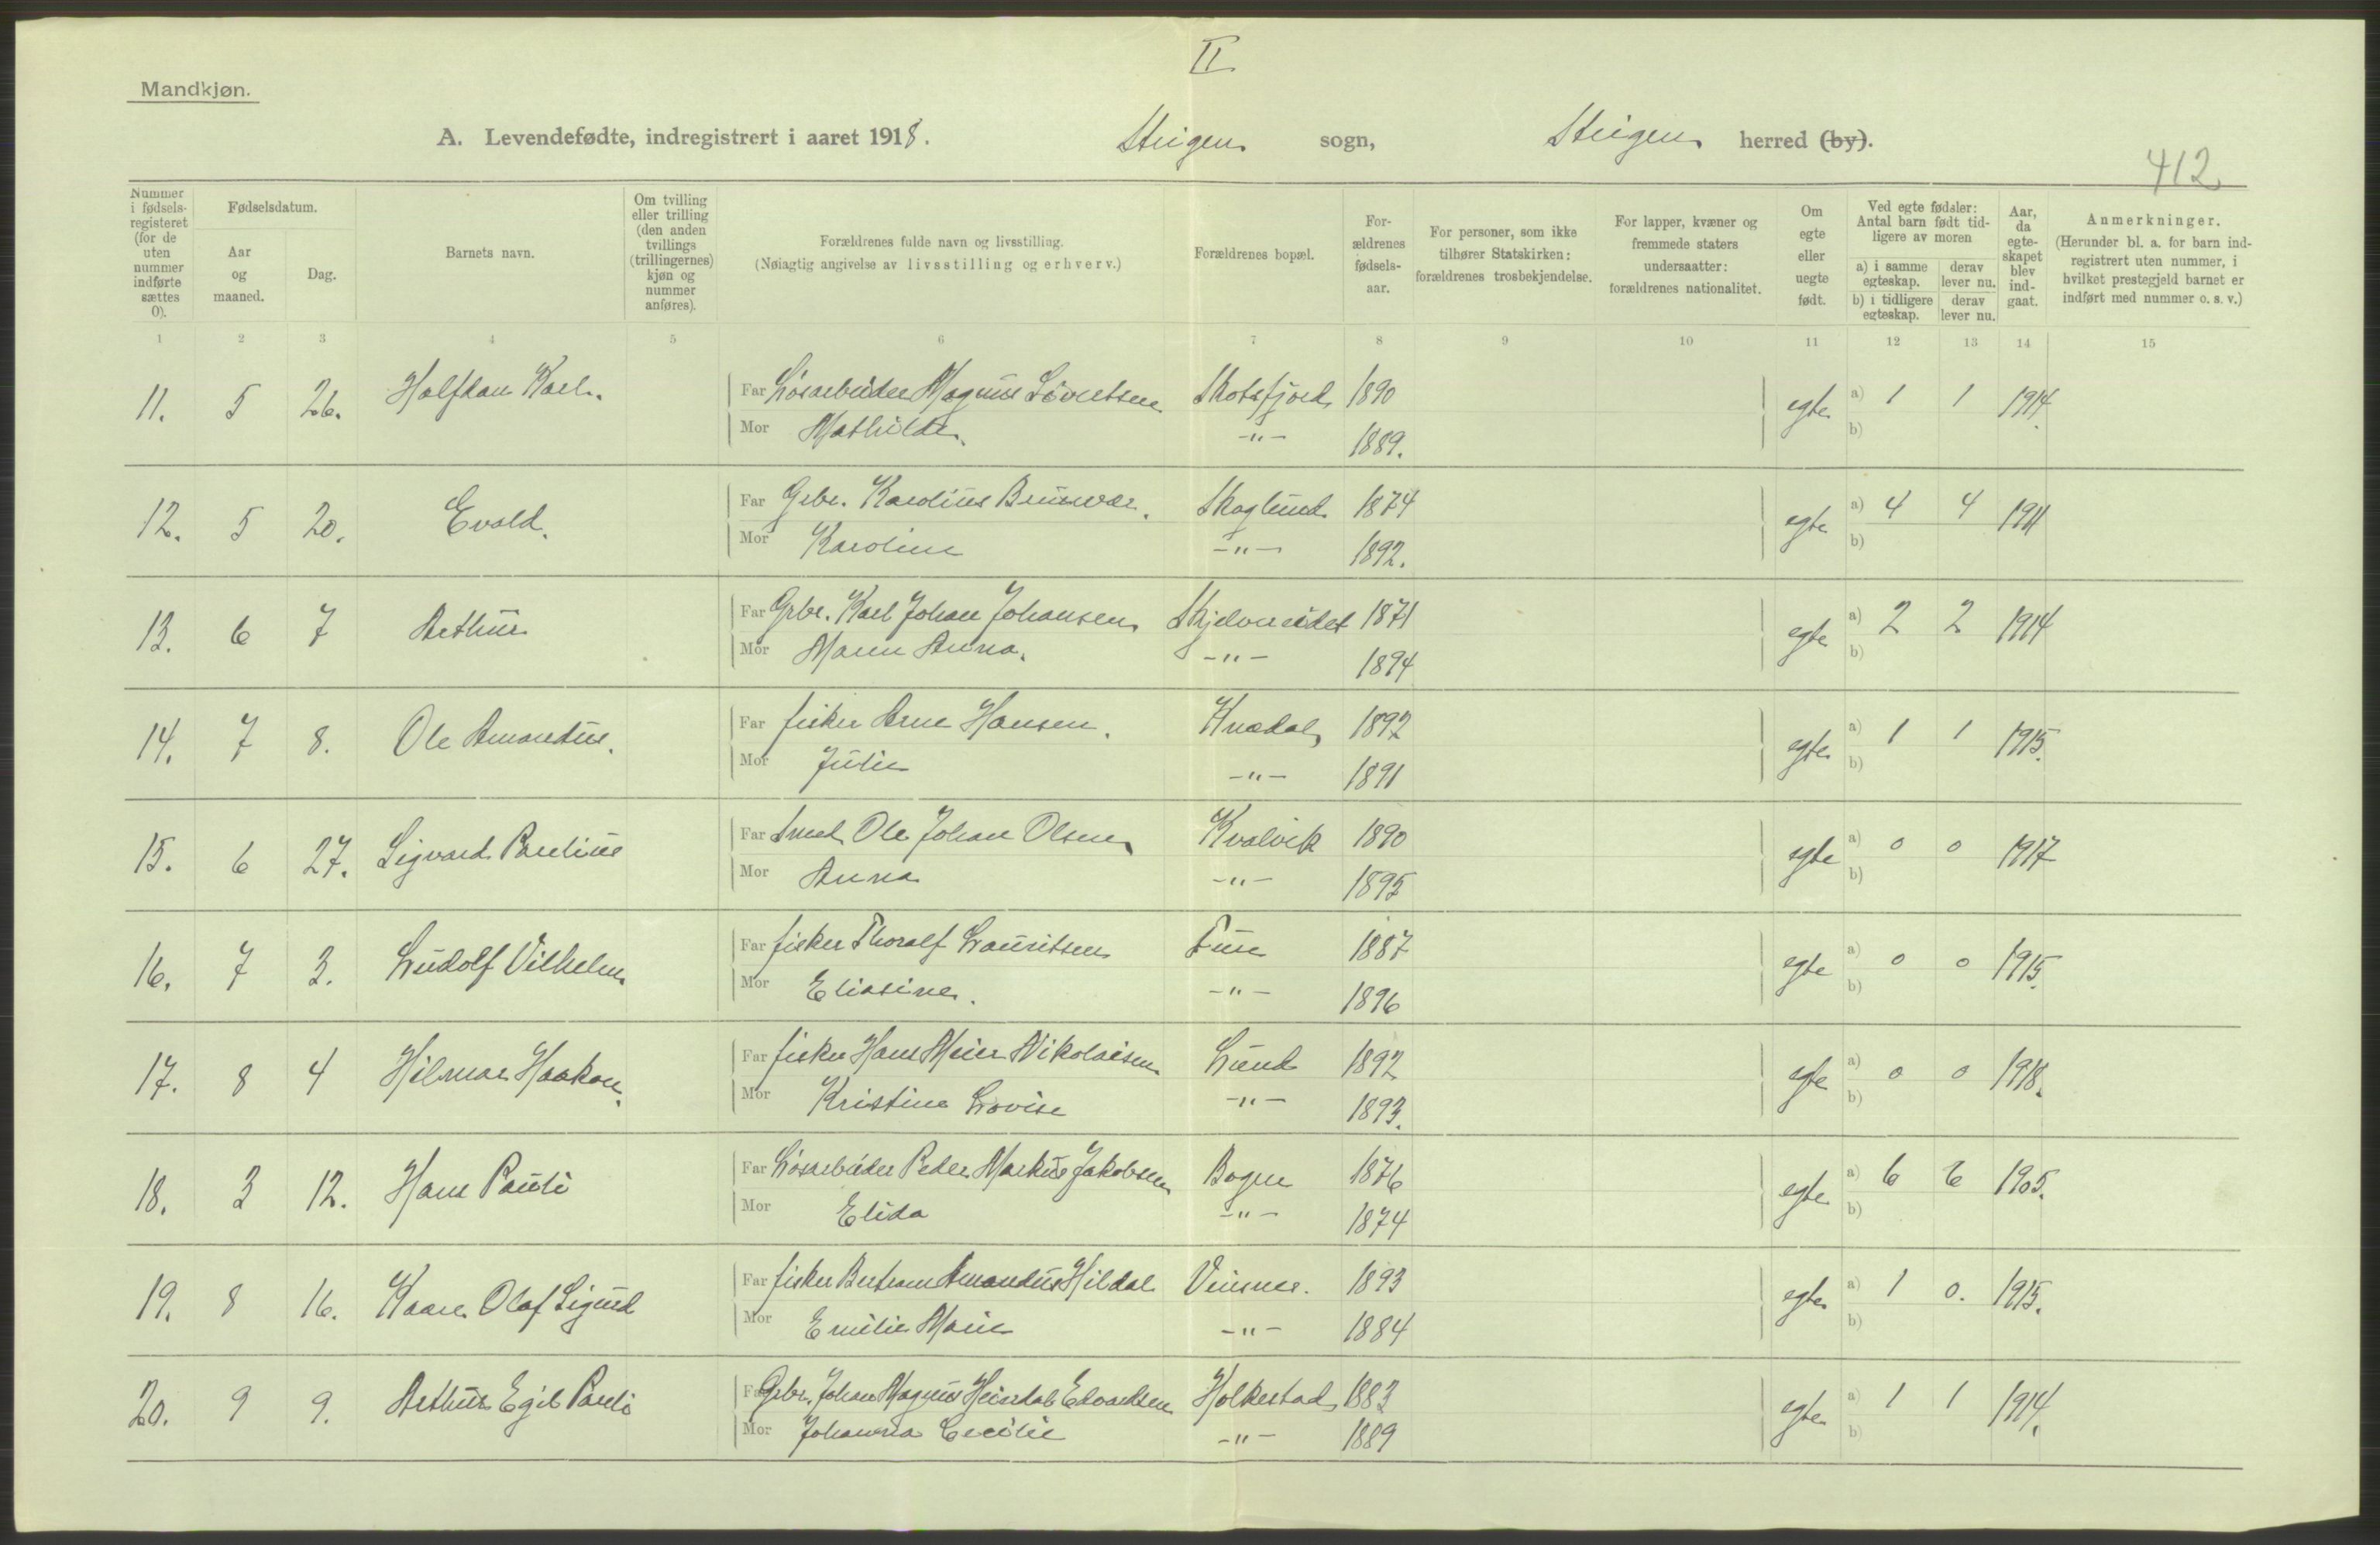 II
Mandkjøn.
A. Levendefødte, indregistrert i aaret 1918. Steigen sogn, Steigen herred (by).
412
Nummer i fødsels-registeret (for de uten nummer indførte sættes 0).
Fødselsdatum.
Aar og maaned.
Dag.
Barnets navn.
Om tvilling eller trilling (den anden tvillings (trillingernes) kjøn og nummer anføres).
Forældrenes fulde navn og livsstilling.
(Nøiagtig angivelse av livsstilling og erhverv.)
Forældrenes bopæl.
For-ældrenes fødsels-aar.
For personer, som ikke tilhører Statskirken: forældrenes trosbekjendelse.
For lapper, kvæner og fremmede staters undersaatter: forældrenes nationalitet.
Om egte eller uegte født.
Ved egte fødsler: Antal barn født tid-ligere av moren
a) i samme egteskap. derav lever nu.
b) i tidligere egteskap. derav lever nu.
Aar, da egte-skapet blev ind-gaat.
Anmerkninger.
(Herunder bl. a. for barn ind-registrert uten nummer, i hvilket prestegjeld barnet er indført med nummer o. s. v.)
1 2 3 4 5 6 7 8 9 10 11 12 13 14 15
11. 5 26. Halfdan Karl. Far Løsarbeider Magnus Sivertsen Skotsfjord 1890 egte a) 1 1 1914.
Mor Mathilde. -"- 1889. b)
12. 5 20. Evald. Far Grbr. Karolius Brunvær. Skaglund 1874 egte a) 4 4 1911
Mor Karoline -"- 1892. b)
13. 6 7 Arthur Far Grbr. Karl Johan Johansen Skjelvereidet 1871 egte a) 2 2 1914
Mor Maren Anna. -"- 1894 b)
14. 7 8. Ole Amandus. Far fisker Arne Hansen. Knædal 1892 egte a) 1 1 1915.
Mor Julie -"- 1891 b)
15. 6 27. Sigvard Paulius Far Smed Ole Johan Olsen Kvalvik 1890 egte a) 0 0 1917
Mor Anna -"- 1895 b)
16. 7 3. Ludolf Vilhelm Far fisker Thoralf Lauritsen Tun 1887 egte a) 0 0 1915.
Mor Eliasine. -"- 1896 b)
17. 8 4 Hilmar Haakon. Far fisker Hans Meier Nikolaisen Lund 1892 egte a) 0 0 1918.
Mor Kristine Lovise -"- 1893. b)
18. 3 12. Hans Pauli Far Løsarbeider Peder Markus Jakobsen Bogen 1876 egte a) 6 6 1905.
Mor Elida -"- 1874 b)
19. 8 16. Kaare Olaf Sigurd Far fisker Bertram Amandus Hildal Vinsnes. 1893 egte a) 1 0. 1915.
Mor Emilie Marie -"- 1884 b)
20. 9 9. Arthur Egil Pauli Far Grbr. Johan Magnus Heindal Edvardsen Holkestad 1883 egte a) 1 1 1914.
Mor Johanna Cecilie -"- 1889 b)